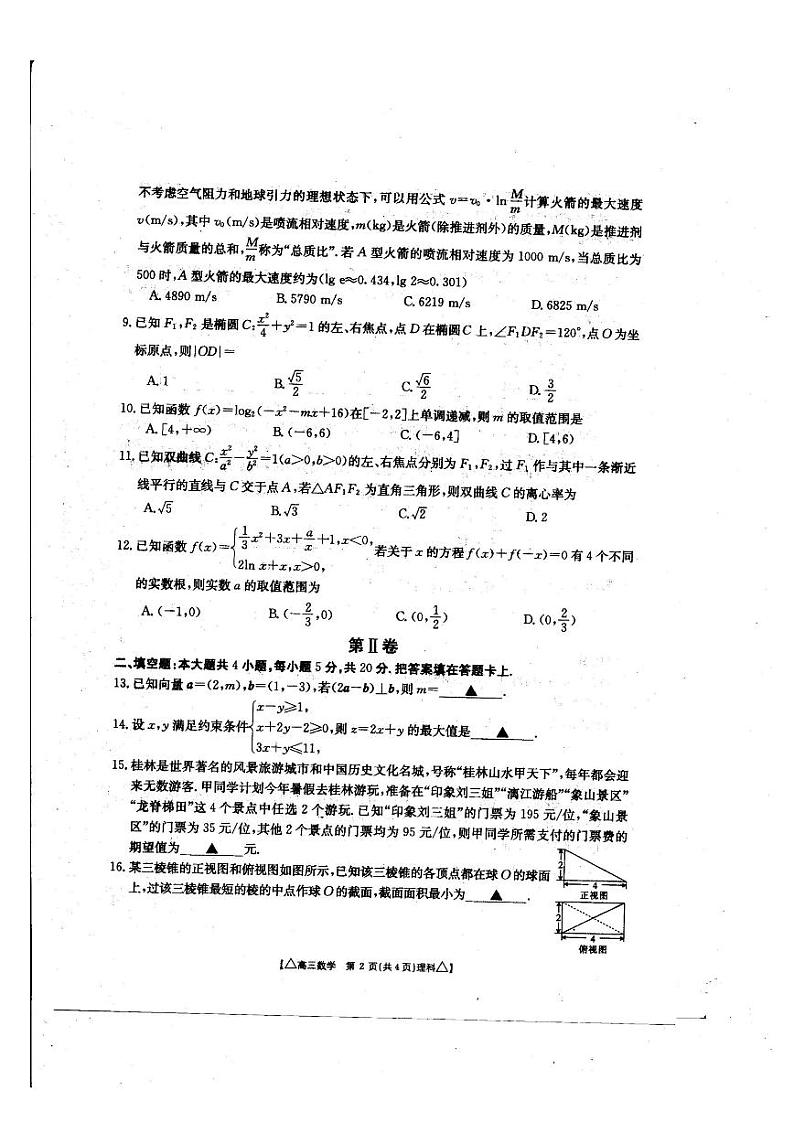 不考虑空气阻力和地球引力的理想状态下,可以用公式 v=v₀·ln M/m 计算火箭的最大速度
v(m/s),其中 v₀(m/s)是喷流相对速度,m(kg)是火箭(除推进剂外)的质量,M(kg)是推进剂
与火箭质量的总和,M/m称为“总质比”.若 A 型火箭的喷流相对速度为 1000 m/s,当总质比为
500 时,A 型火箭的最大速度约为(lg e≈0.434,lg 2≈0.301)
A. 4890 m/s B. 5790 m/s C. 6219 m/s D. 6825 m/s
9. 已知 F₁,F₂ 是椭圆 C:x²/4+y²=1 的左、右焦点,点 D 在椭圆 C 上,∠F₁DF₂=120°,点 O 为坐
标原点,则|OD|=
A. 1 B. √5/2 C. √6/2 D. 3/2
10. 已知函数 f(x)=log₂(-x²-mx+16)在[-2,2]上单调递减,则 m 的取值范围是
A. [4,+∞) B. (-6,6) C. (-6,4] D. [4,6)
11. 已知双曲线 C:x²/a²-y²/b²=1(a>0,b>0)的左、右焦点分别为 F₁,F₂,过 F₁ 作与其中一条渐近
线平行的直线与 C 交于点 A,若△AF₁F₂ 为直角三角形,则双曲线 C 的离心率为
A. √5 B. √3 C. √2 D. 2
12. 已知函数 f(x)={1/3x²+3x+a/x+1,x<0, 2ln x+x,x>0, 若关于 x 的方程 f(x)+f(-x)=0 有 4 个不同
的实数根,则实数 a 的取值范围为
A. (-1,0) B. (-2/3,0) C. (0,1/2) D. (0,2/3)
第Ⅱ卷
二、填空题:本大题共 4 小题,每小题 5 分,共 20 分.把答案填在答题卡上.
13. 已知向量 a=(2,m),b=(1,-3),若(2a-b)⊥b,则 m=▲.
14. 设 x,y 满足约束条件{x-y≥1, x+2y-2≥0, 3x+y≤11, 则 z=2x+y 的最大值是▲.
15. 桂林是世界著名的风景旅游城市和中国历史文化名城,号称“桂林山水甲天下”,每年都会迎
来无数游客.甲同学计划今年暑假去桂林游玩,准备在“印象刘三姐”“漓江游船”“象山景区”
“龙脊梯田”这 4 个景点中任选 2 个游玩.已知“印象刘三姐”的门票为 195 元/位,“象山景
区”的门票为 35 元/位,其他 2 个景点的门票均为 95 元/位,则甲同学所需支付的门票费的
期望值为▲元.
16. 某三棱锥的正视图和俯视图如图所示,已知该三棱锥的各顶点都在球 O 的球面
上,过该三棱锥最短的棱的中点作球 O 的截面,截面面积最小为▲.
2
4
正视图
2
4
俯视图
【△高三数学 第 2 页(共 4 页)理科△】